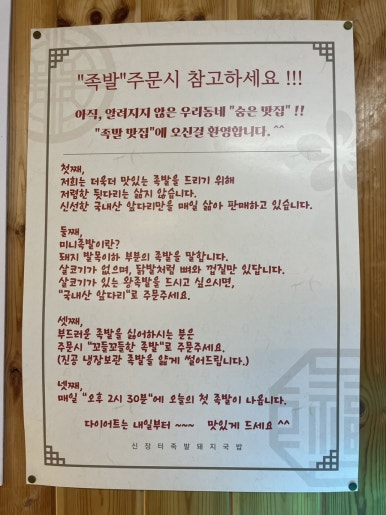 "족발"주문시 참고하세요 !!!
아직, 알려지지 않은 우리동네 "숨은 맛집" !!
"족발 맛집"에 오신걸 환영합니다. ^^
첫째,
저희는 더욱더 맛있는 족발을 드리기 위해
저렴한 뒷다리는 삶지 않습니다.
신선한 국내산 앞다리만을 매일 삶아 판매하고 있습니다.
둘째,
미니족발이란?
돼지 발목이하 부분의 족발을 말합니다.
살코기가 없으며, 닭발처럼 뼈와 껍질만 있답니다.
살코기가 있는 왕족발을 드시고 싶으시면,
"국내산 앞다리"로 주문주세요.
셋째,
부드러운 족발을 싫어하시는 분은
주문시 "꼬들꼬들한 족발"로 주문주세요.
(진공 냉장보관 족발을 얇게 썰어드립니다.)
넷째,
매일 "오후 2시 30분"에 오늘의 첫 족발이 나옵니다.
다이어트는 내일부터 ~~~ 맛있게 드세요 ^^
신장터족발돼지국밥